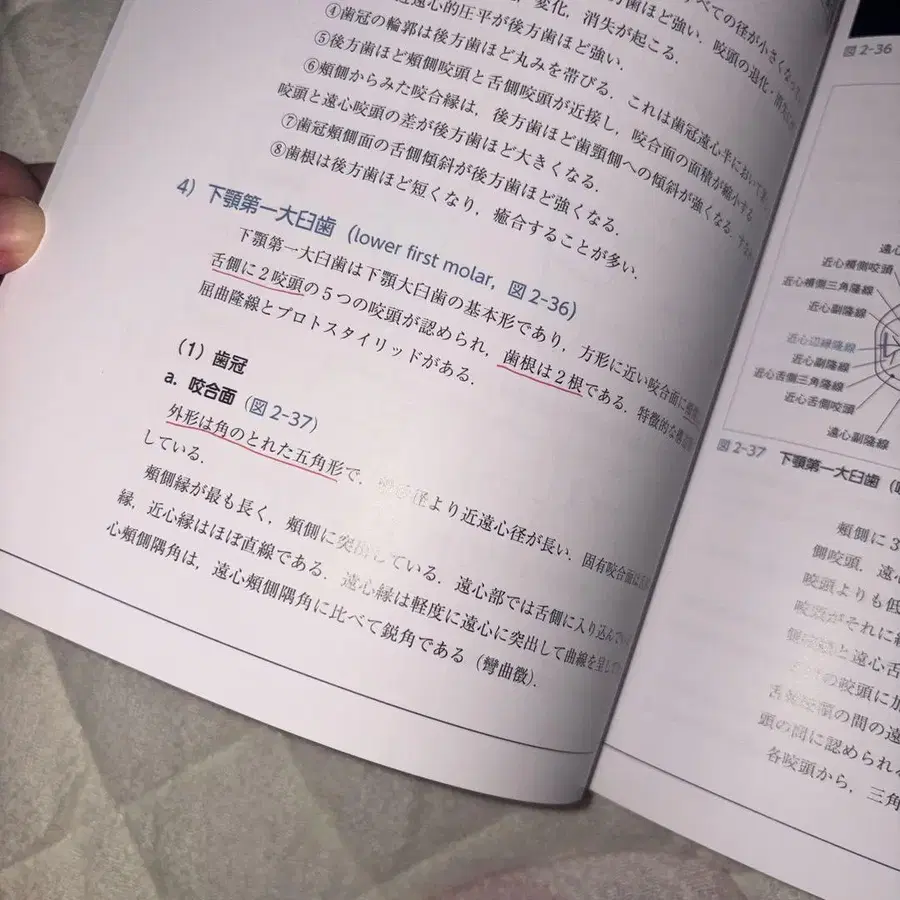 べての径が小さくなっ
歯ほど強い．咬頭の退化・消
変化，消失が起こる．
遠心的圧平が後方歯ほど強い．
④歯冠の輪郭は後方歯ほど丸みを帯びる．これは歯冠遠心半において
⑤後方歯ほど頰側咬頭と舌側咬頭が近接し，咬合面の面積が縮小する
⑥頰側からみた咬合縁は，後方歯ほど歯頸側への傾斜が強くなる．
咬頭と遠心咬頭の差が後方歯ほど大きくなる．
⑦歯冠頰側面の舌側傾斜が後方歯ほど強くなる．
⑧歯根は後方歯ほど短くなり，癒合することが多い．
4）下顎第一大臼歯（lower first molar，図 2-36）
下顎第一大臼歯は下顎大臼歯の基本形であり，方形に近い咬合面に
舌側に2咬頭の5つの咬頭が認められ，歯根は2根である．特徴的な
屈曲隆線とプロトスタイリッドがある．
（1）歯冠
a．咬合面（図 2-37）
外形は角のとれた五角形で，径より近遠心径が長い．固有咬合面は
している．
頰側縁が最も長く，頰側に突出している．遠心部では舌側に入り込んで
縁，近心縁はほぼ直線である．遠心縁は軽度に遠心に突出して曲線を呈して
心頰側隅角は，遠心頰側隅角に比べて鋭角である（彎曲徴）．
図 2-36
近心頰側咬頭
近心頰側三角隆線
近心副隆線
近心辺縁隆線
近心副隆線
近心舌側三角隆線
近心舌側咬頭
遠心副隆線
図 2-37 下顎第一大臼歯
頰側に3
側咬頭，遠
咬頭よりも低
咬頭がそれに
と遠心舌
の咬頭に加
頭の間の遠
頭の間に認められる
各咬頭から，三角